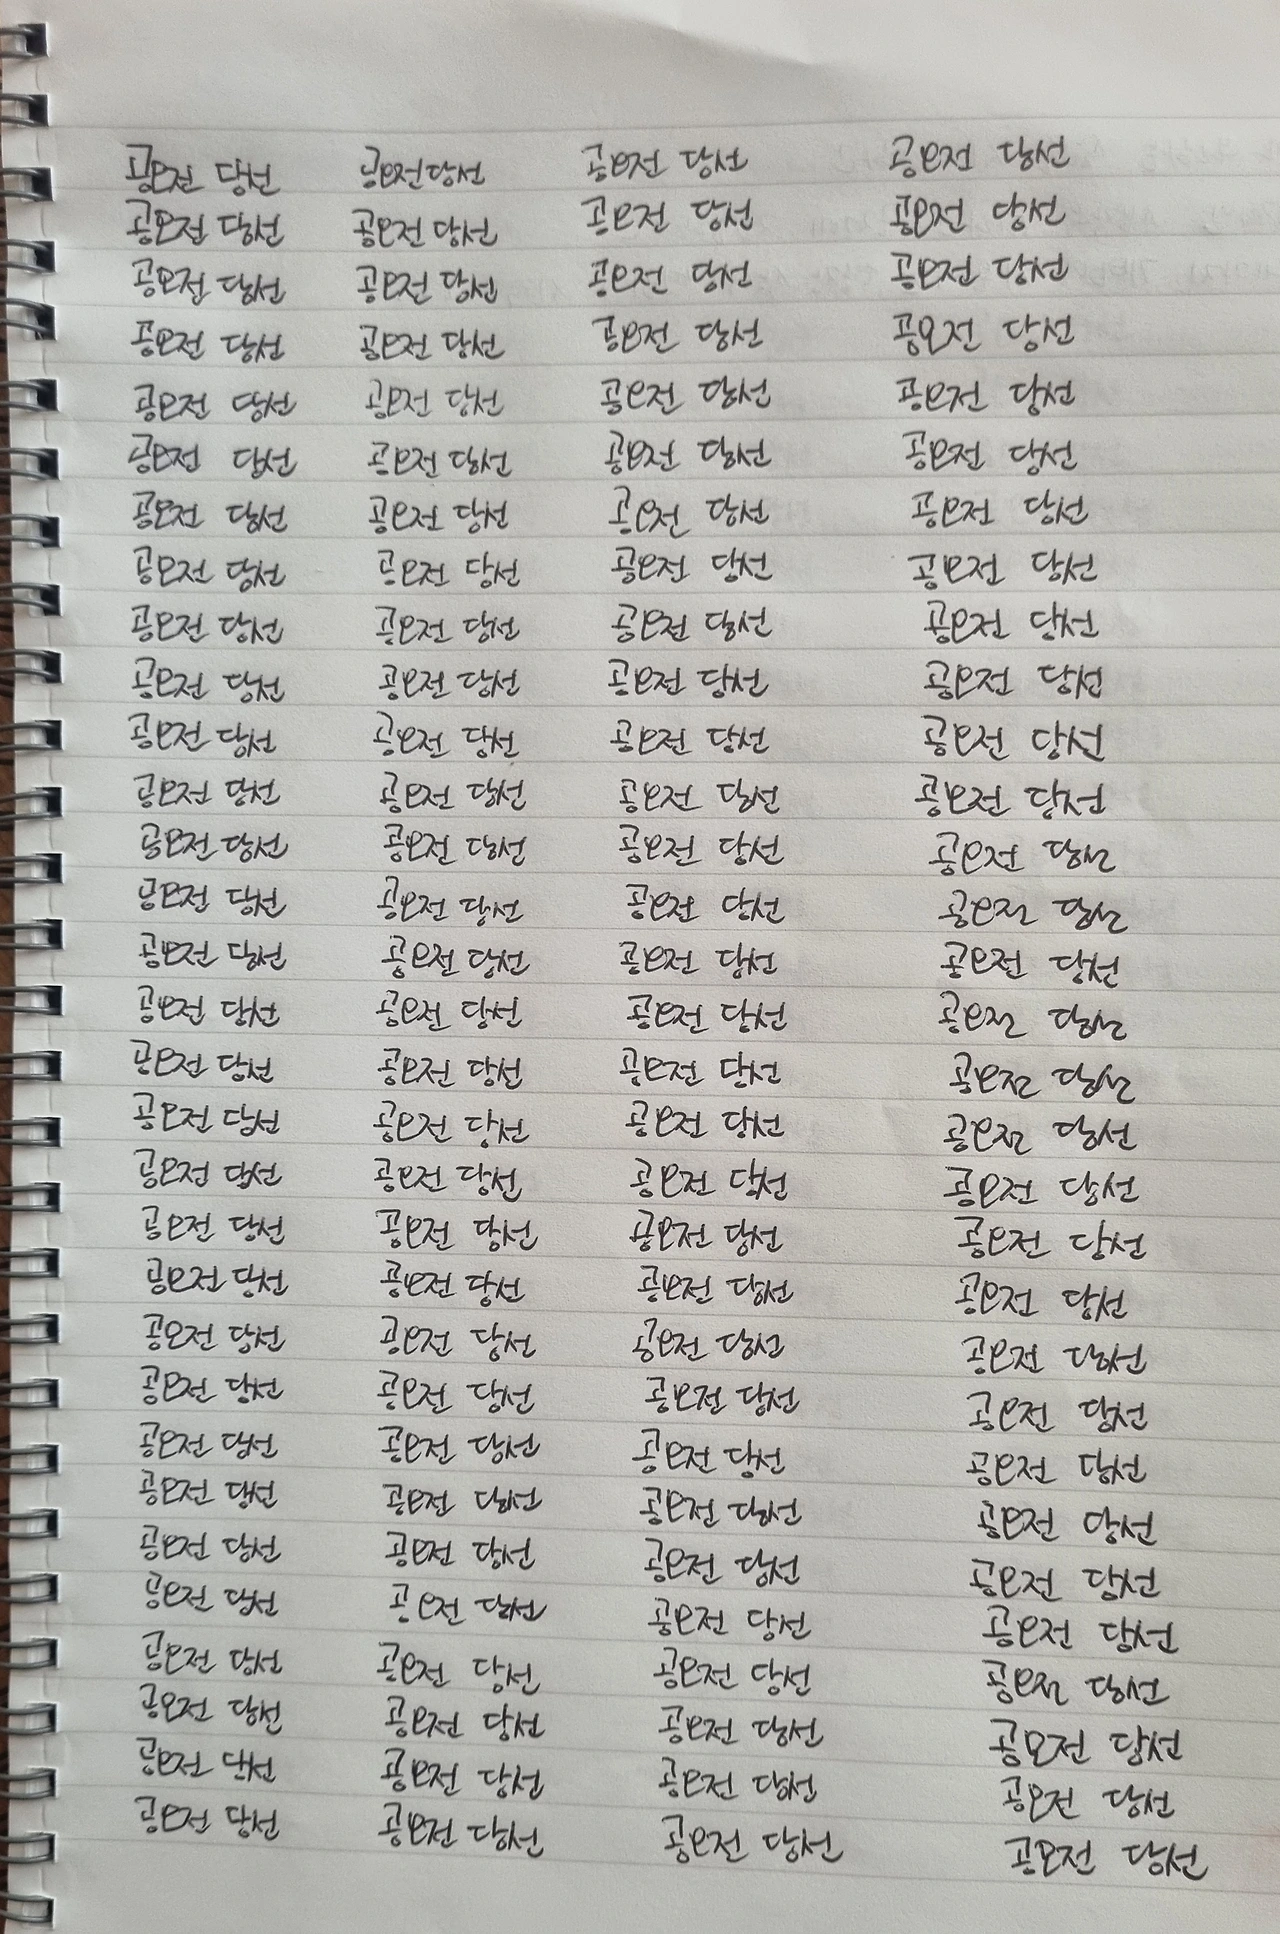 공모전 당선 공모전 당선 공모전 당선 공모전 당선
공모전 당선 공모전 당선 공모전 당선 공모전 당선
공모전 당선 공모전 당선 공모전 당선 공모전 당선
공모전 당선 공모전 당선 공모전 당선 공모전 당선
공모전 당선 공모전 당선 공모전 당선 공모전 당선
공모전 당선 공모전 당선 공모전 당선 공모전 당선
공모전 당선 공모전 당선 공모전 당선 공모전 당선
공모전 당선 공모전 당선 공모전 당선 공모전 당선
공모전 당선 공모전 당선 공모전 당선 공모전 당선
공모전 당선 공모전 당선 공모전 당선 공모전 당선
공모전 당선 공모전 당선 공모전 당선 공모전 당선
공모전 당선 공모전 당선 공모전 당선 공모전 당선
공모전 당선 공모전 당선 공모전 당선 공모전 당선
공모전 당선 공모전 당선 공모전 당선 공모전 당선
공모전 당선 공모전 당선 공모전 당선 공모전 당선
공모전 당선 공모전 당선 공모전 당선 공모전 당선
공모전 당선 공모전 당선 공모전 당선 공모전 당선
공모전 당선 공모전 당선 공모전 당선 공모전 당선
공모전 당선 공모전 당선 공모전 당선 공모전 당선
공모전 당선 공모전 당선 공모전 당선 공모전 당선
공모전 당선 공모전 당선 공모전 당선 공모전 당선
공모전 당선 공모전 당선 공모전 당선 공모전 당선
공모전 당선 공모전 당선 공모전 당선 공모전 당선
공모전 당선 공모전 당선 공모전 당선 공모전 당선
공모전 당선 공모전 당선 공모전 당선 공모전 당선
공모전 당선 공모전 당선 공모전 당선 공모전 당선
공모전 당선 공모전 당선 공모전 당선 공모전 당선
공모전 당선 공모전 당선 공모전 당선 공모전 당선
공모전 당선 공모전 당선 공모전 당선 공모전 당선
공모전 당선 공모전 당선 공모전 당선 공모전 당선
공모전 당선 공모전 당선 공모전 당선 공모전 당선